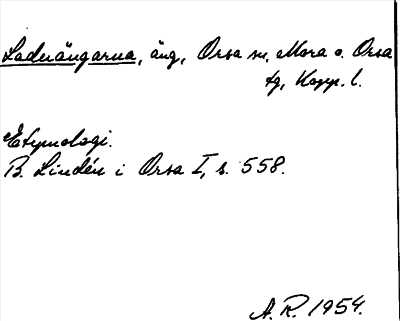 Laduängarna, äng, Orsa sn, Mora o. Orsa
tg, Kopp. l.
Etymologi.
B. Lindén i Orsa I, s. 558.
A.R. 1954.